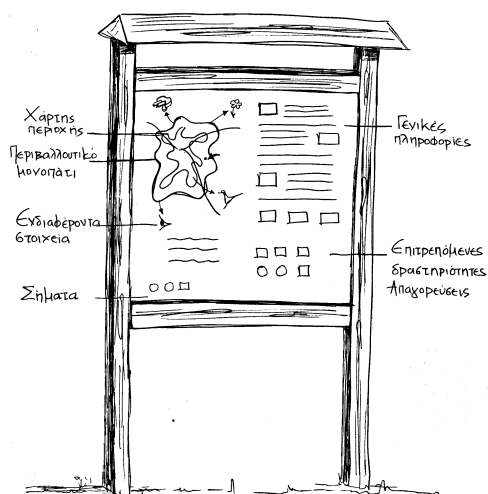 Χάρτης
περιοχής
Περιβαλλοντικό
μονοπάτι
Ενδιαφέροντα
στοιχεία
Σήματα
Γενικές
πληροφορίες
Επιτρεπόμενες
δραστηριότητες
Απαγορεύσεις